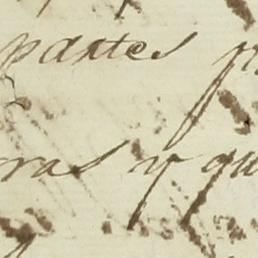 partes
ras y qu